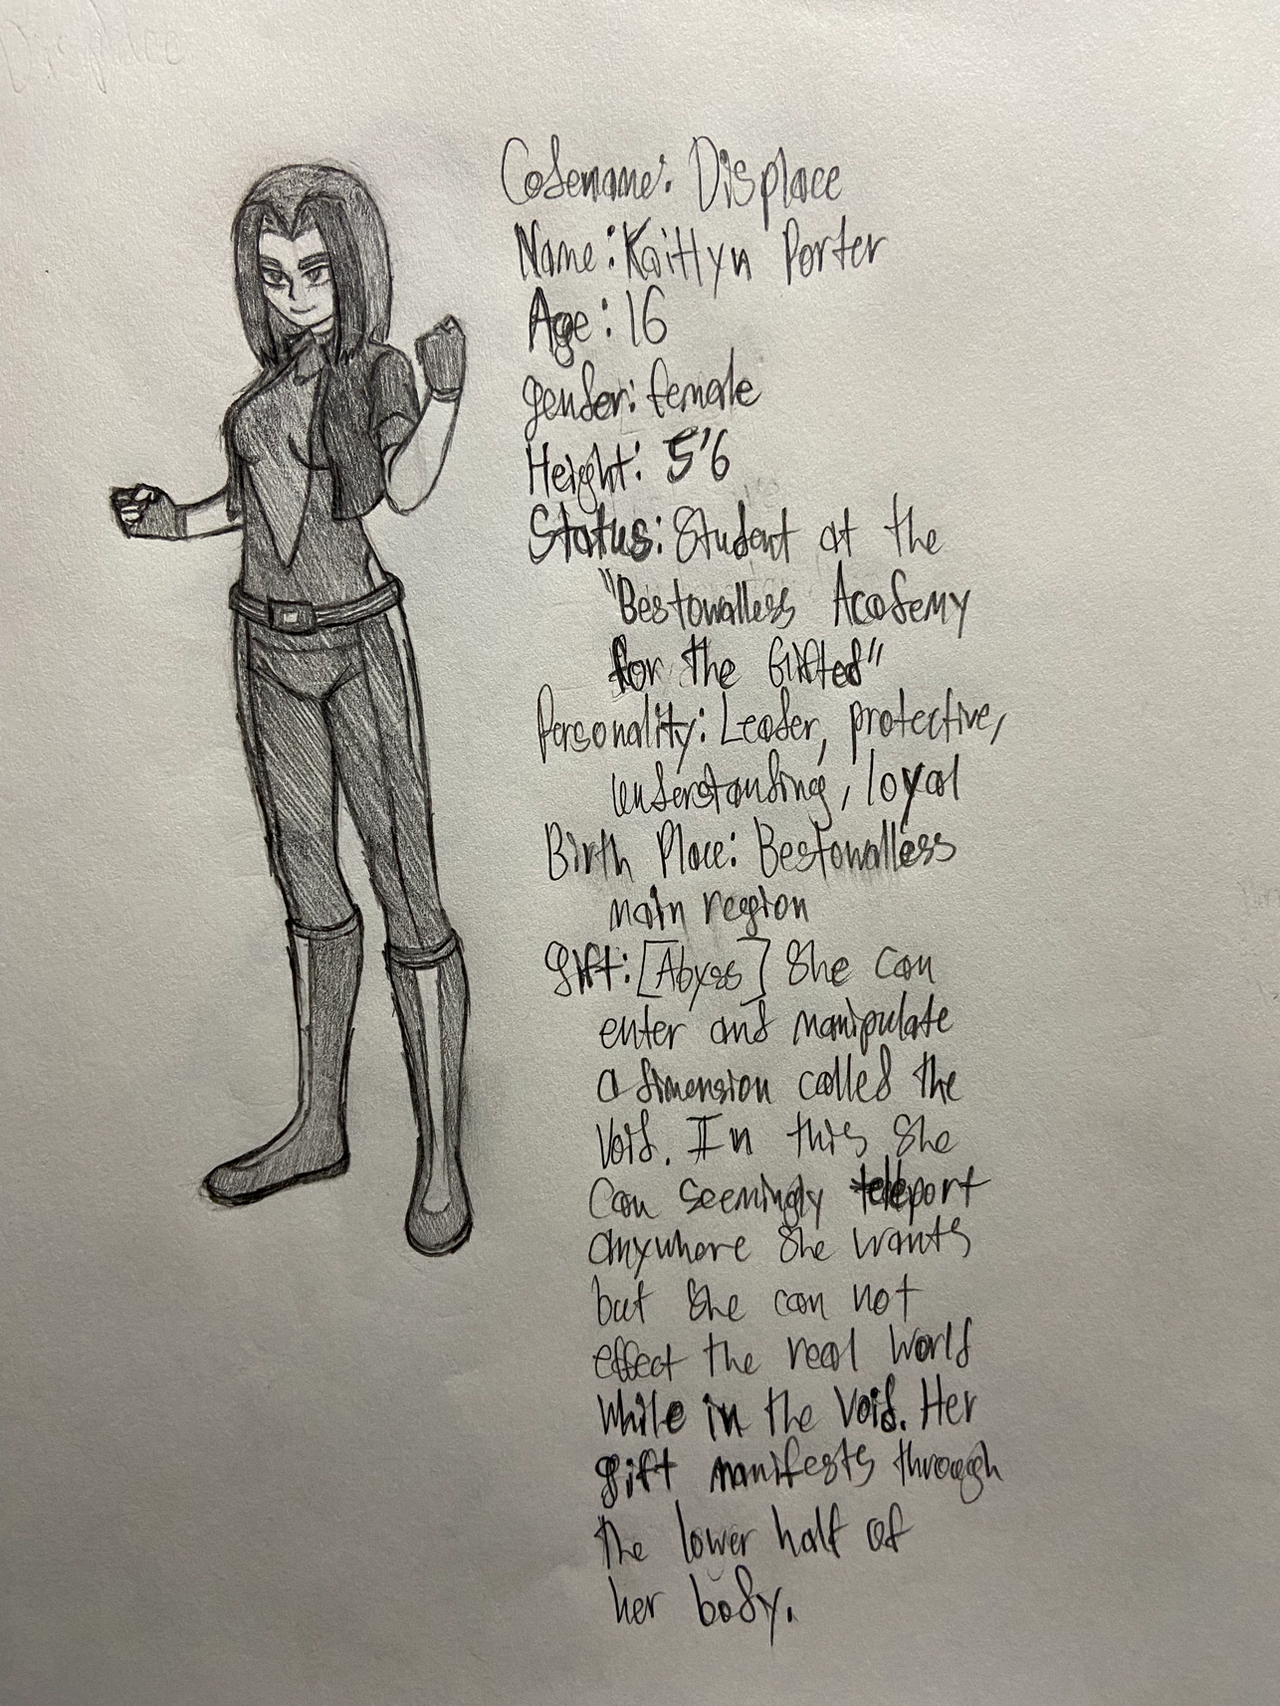 Displace
Codename: Displace
Name: Kaitlyn Porter
Age: 16
gender: female
Height: 5'6
Status: Student at the
"Bestowalless Academy
for the Gifted"
Personality: Leader, protective,
understanding, loyal
Birth Place: Bestowalless
main region
gift: [Abyss] She can
enter and manipulate
a dimension called the
Void. In this she
can seemingly teleport
anywhere she wants
but she can not
effect the real world
while in the Void. Her
gift manifests through
the lower half of
her body.